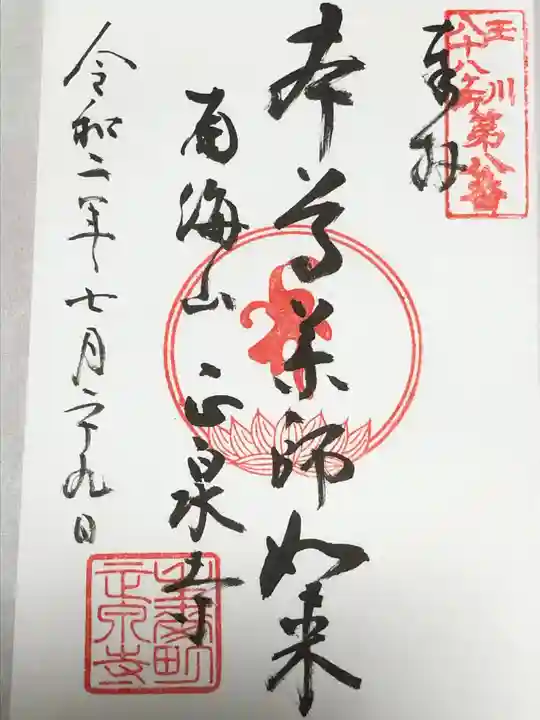 玉川
八十八ヶ所
第八番
奉拝
本尊薬師如来
南海山 正泉寺
令和二年七月二十九日
生麦町
正泉寺